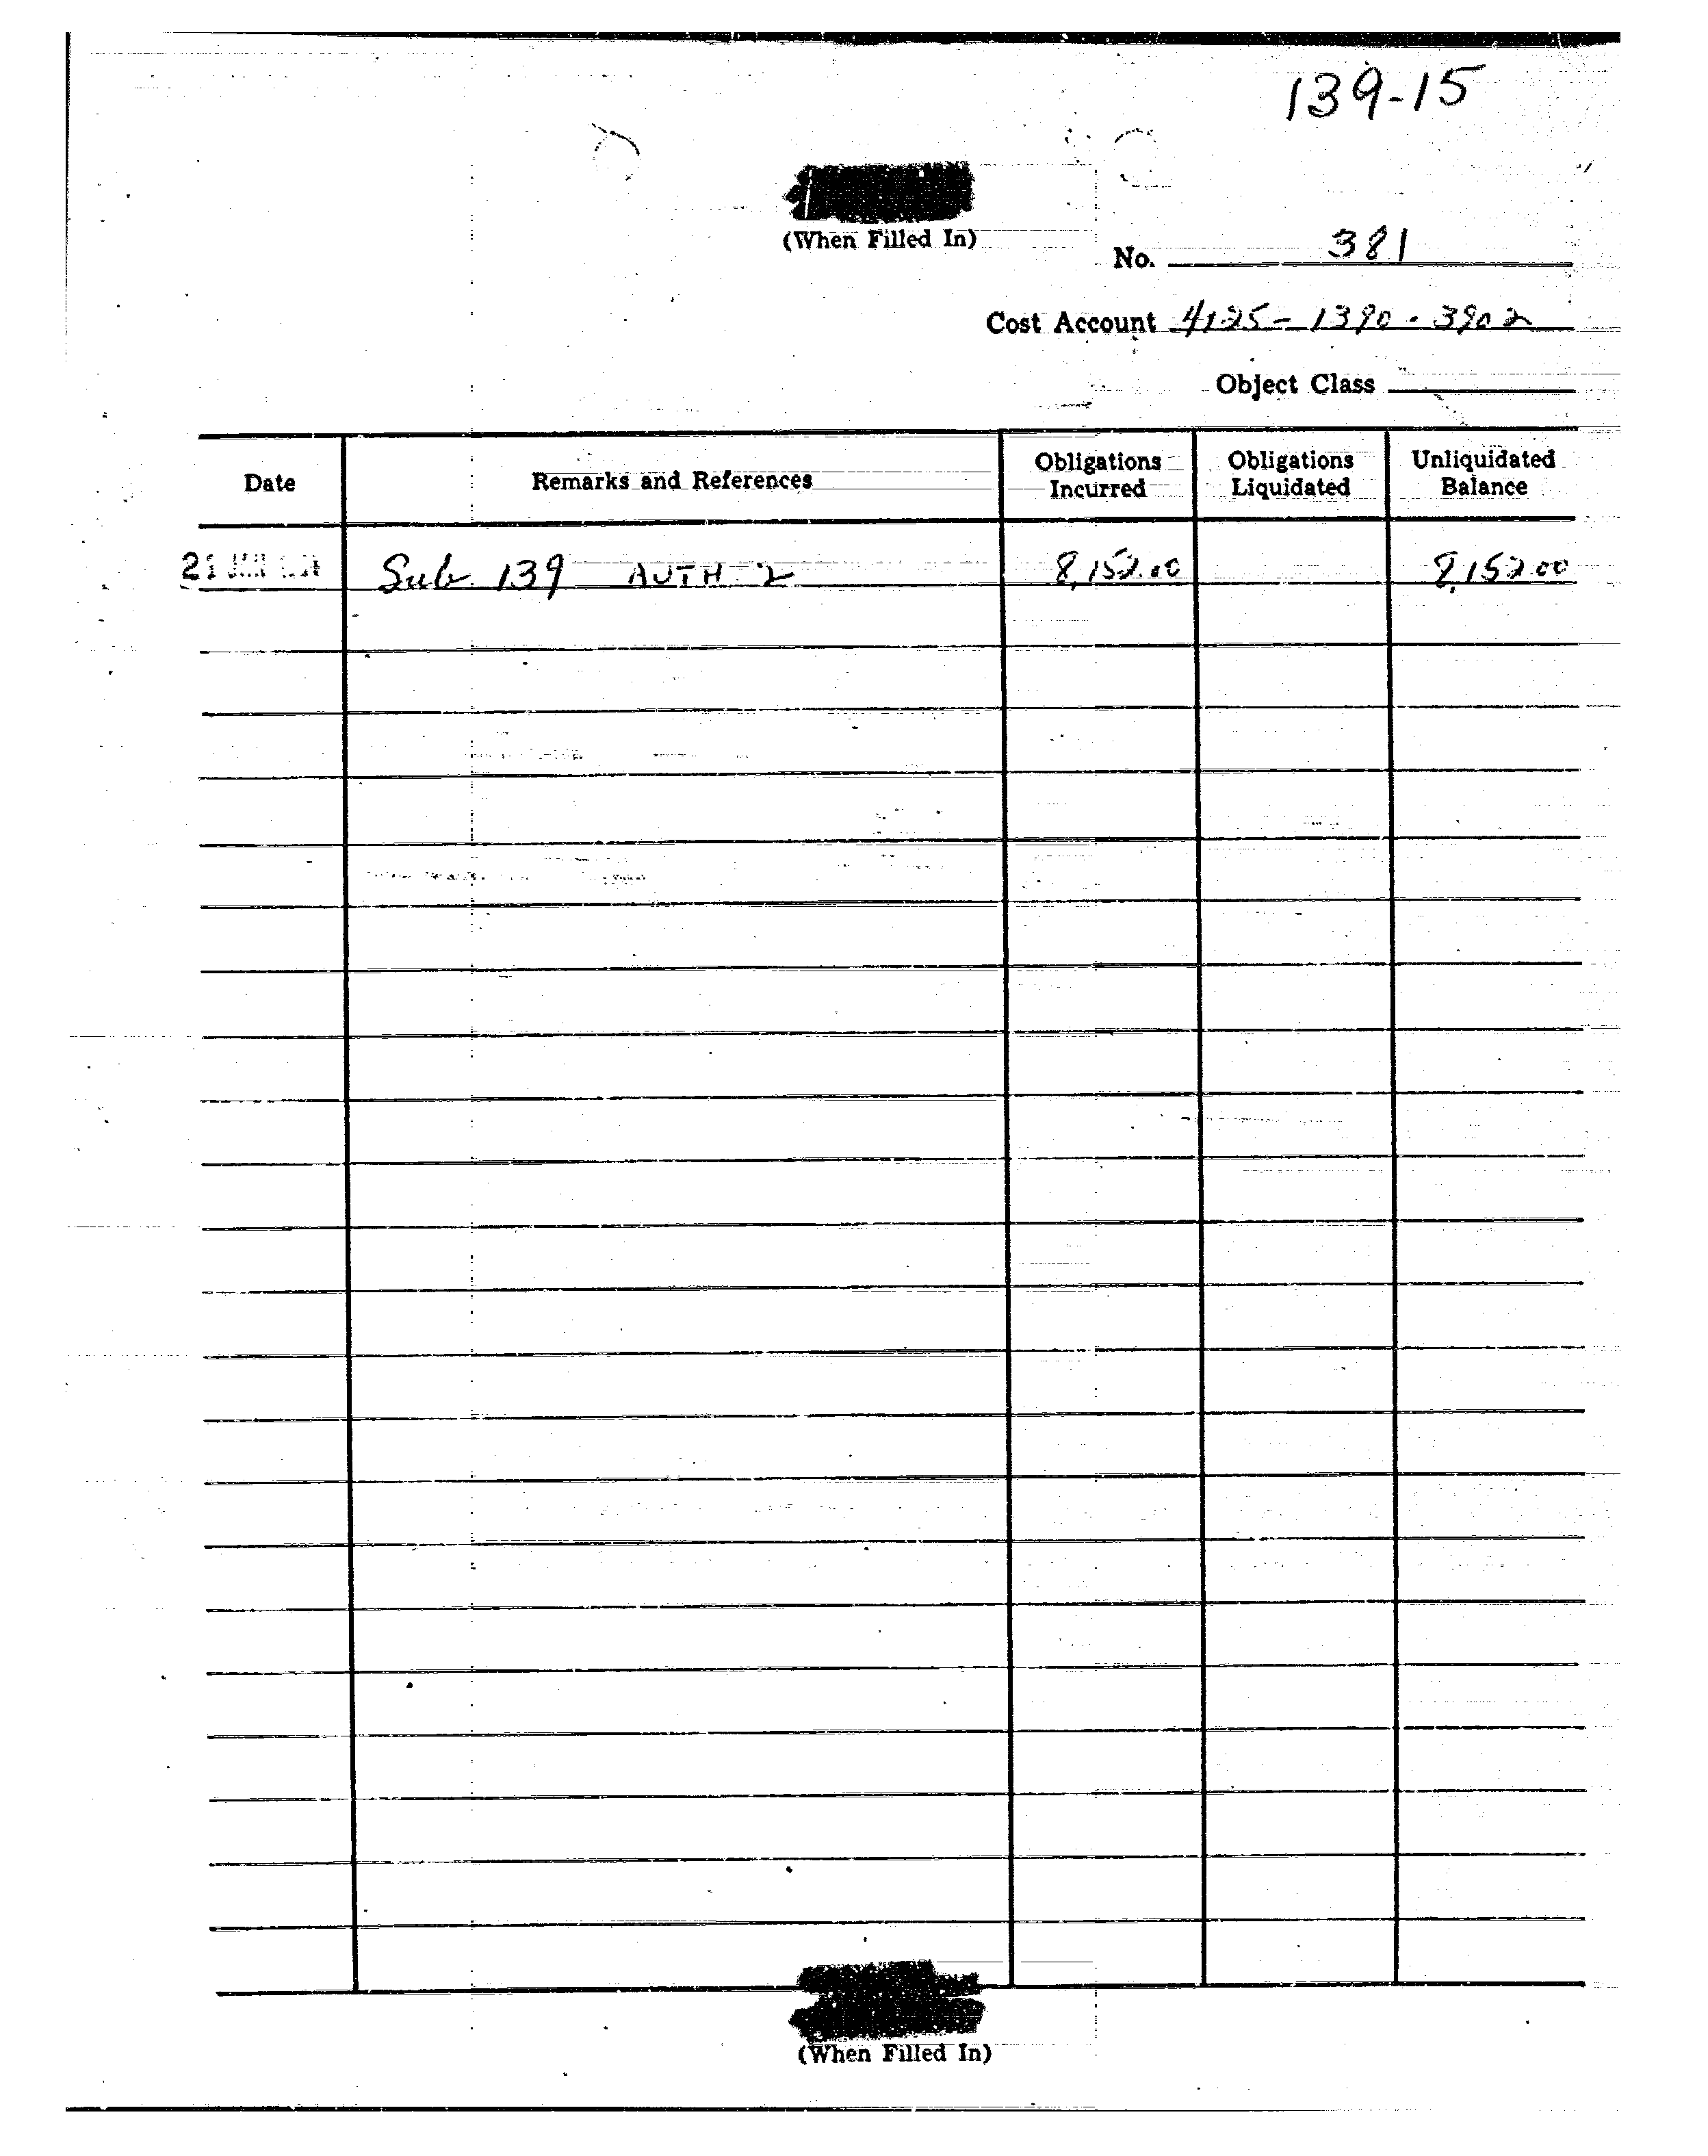 139-15
(When Filled In)
No. 381
Cost Account 4125-1390-3902
Object Class
Date Remarks and References Obligations Incurred Obligations Liquidated Unliquidated Balance
Sub 139 AUTH 2 8,152.00 8,152.00
(When Filled In)